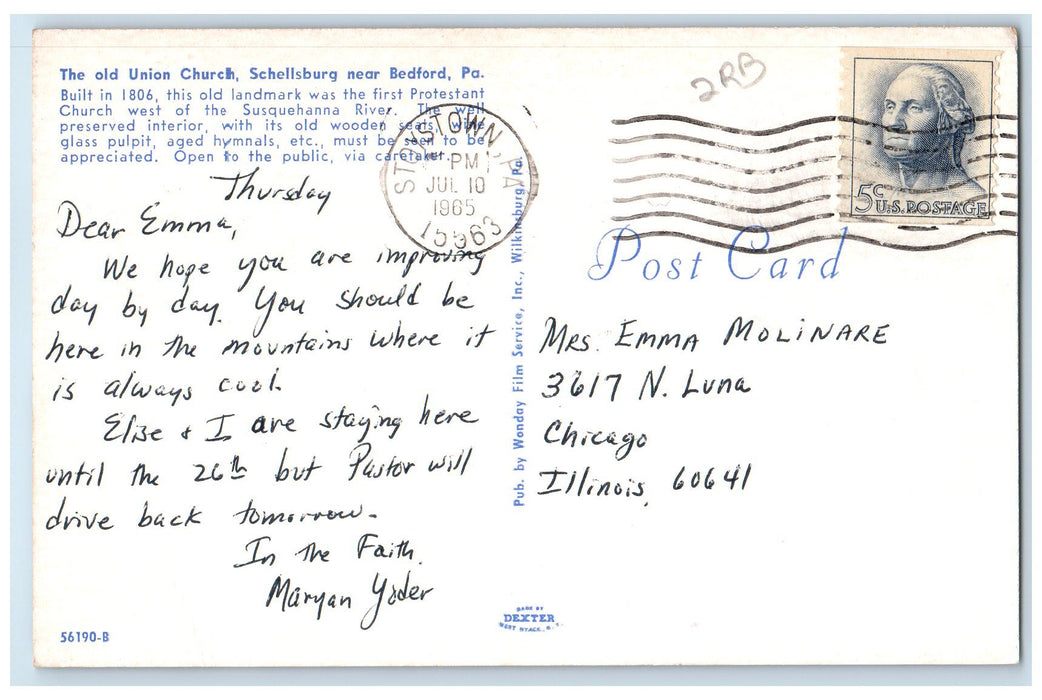 The old Union Church, Schellsburg near Bedford, Pa.
Built in 1806, this old landmark was the first Protestant
Church west of the Susquehanna River. The well
preserved interior, with its old wooden seats, wine
glass pulpit, aged hymnals, etc., must be seen to be
appreciated. Open to the public, via caretaker.
Thursday
Dear Emma,
We hope you are improving
day by day. You should be
here in the mountains where it
is always cool.
Elise & I are staying here
until the 26th but Pastor will
drive back tomorrow.
In the Faith.
Maryan Yoder
56190-B
STOYSTOWN, PA
PM
JUL 10
1965
15563
Pub. by Wonday Film Service, Inc., Wilkinsburg, Pa.
MADE BY
DEXTER
WEST NYACK, N. Y.
2RB
5c
U.S. POSTAGE
Post Card
MRS. EMMA MOLINARE
3617 N. Luna
Chicago
Illinois, 60641